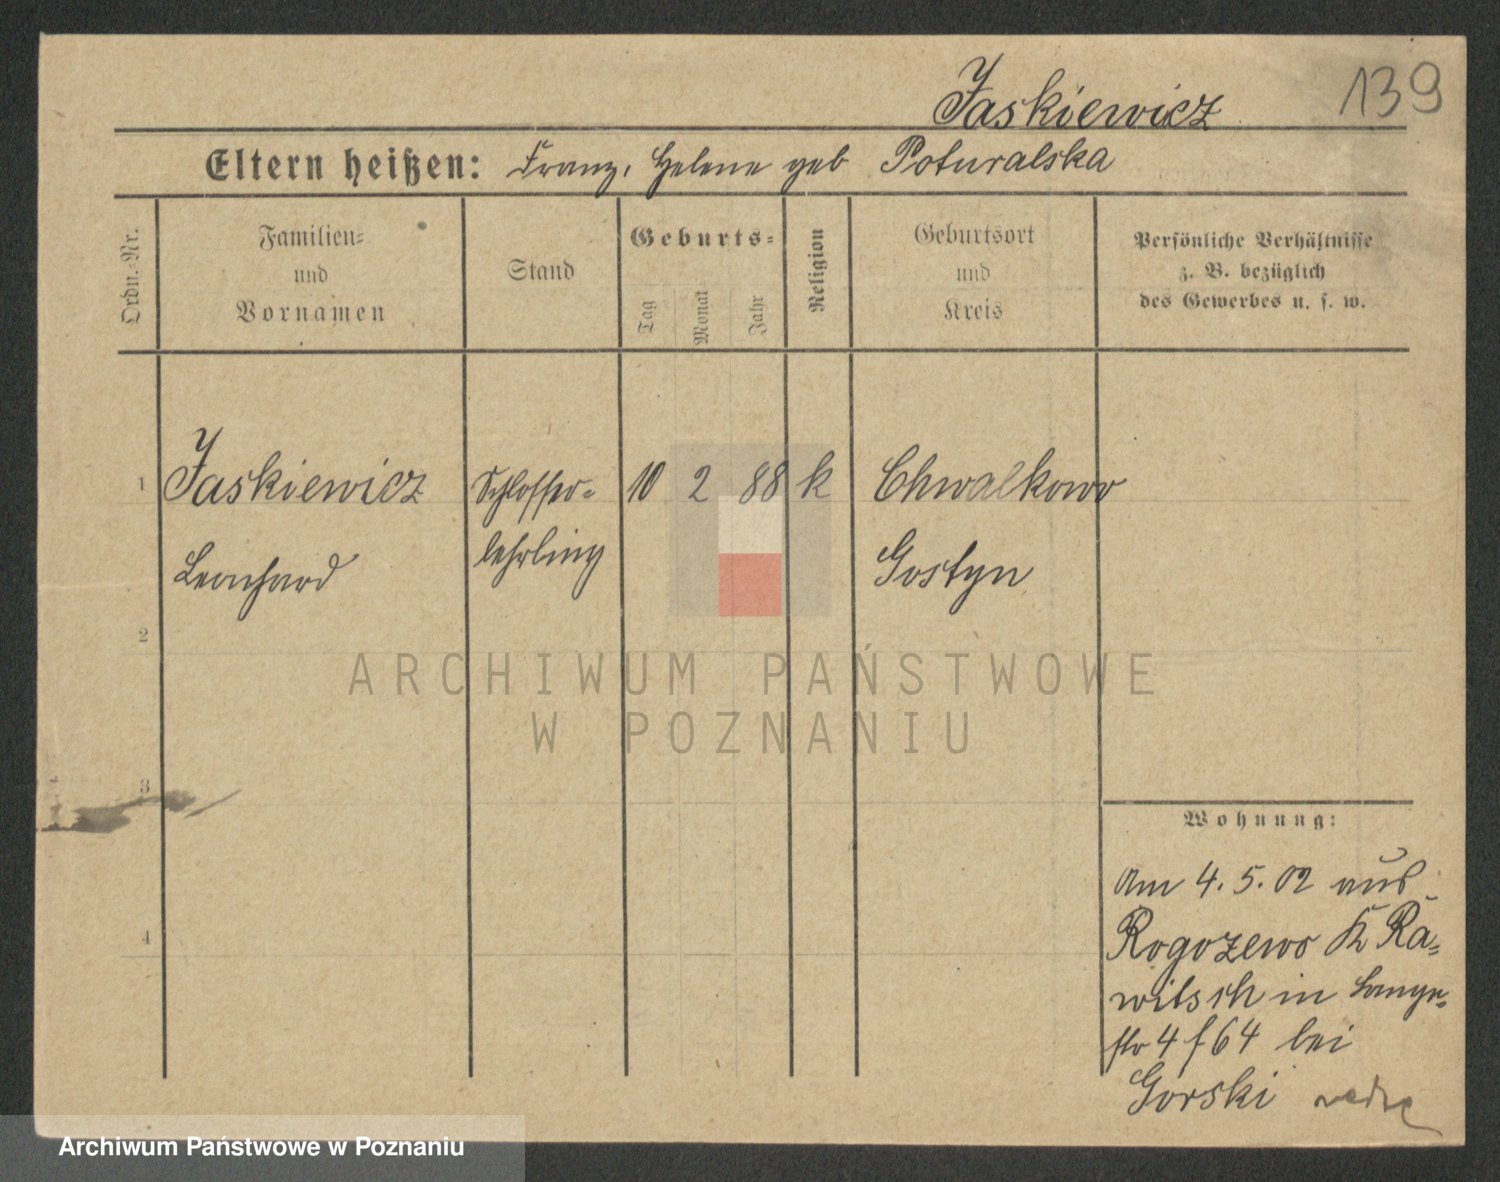 139
Jaskiewicz
Eltern heißen: Franz, Helene geb Poturalska
Ordn.-Nr.
Familien-
und
Vornamen
Stand
Geburts-
Tag
Monat
Jahr
Religion
Geburtsort
und
Kreis
Persönliche Verhältnisse
z. B. bezüglich
des Gewerbes u. s. w.
1 Jaskiewicz Schlosser- 10 2 88 k Chwalkowo
Leonhard lehrling Gostyn
2
ARCHIWUM PAŃSTWOWE
W POZNANIU
3
Wohnung:
Am 4. 5. 02 aus
4
Rogozewo K Ra-
witsch in Lange-
str 4 f 64 bei
Gorski
Archiwum Państwowe w Poznaniu